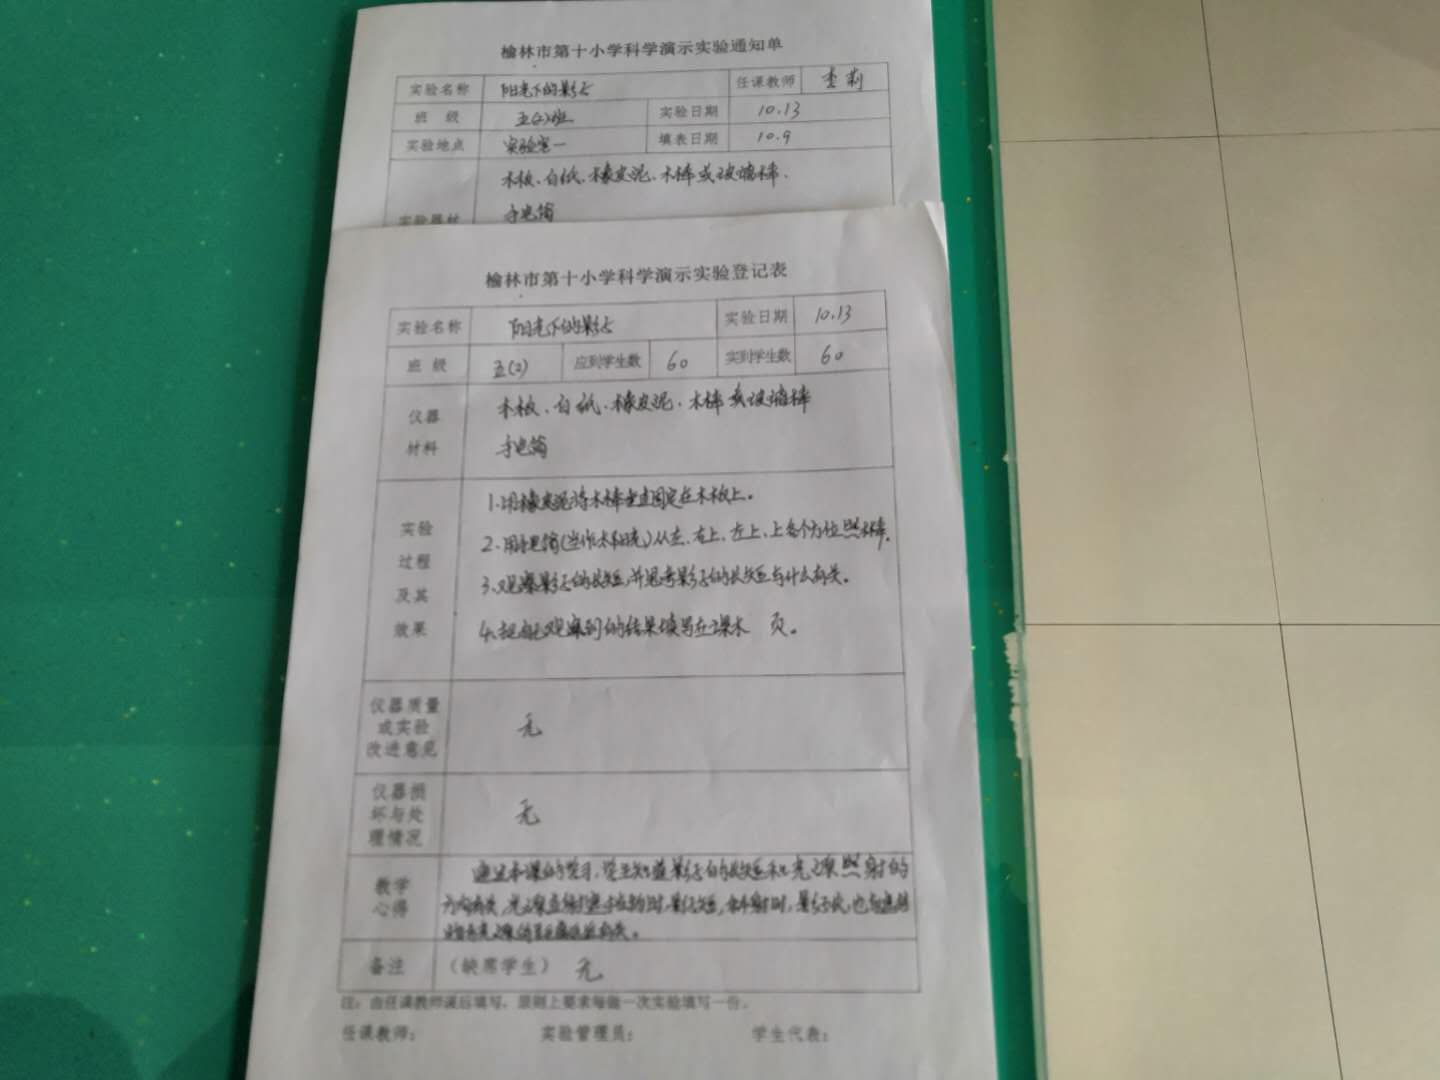 榆林市第十小学科学演示实验通知单
实验名称 阳光下的影子 任课教师 李莉
班 级 五(2)班 实验日期 10.13
实验地点 实验室一 填表日期 10.9
实验器材 木板、白纸、橡皮泥、木棒或玻璃棒.
手电筒
榆林市第十小学科学演示实验登记表
实验名称 阳光下的影子 实验日期 10.13
班 级 五(2) 应到学生数 60 实到学生数 60
仪器材料 木板、白纸、橡皮泥、木棒或玻璃棒
手电筒
实验过程及其效果
1.用橡皮泥将木棒垂直固定在木板上。
2.用手电筒(当作太阳光)从左、右上、左上、上各个方位照木棒.
3.观察影子的长短,并思考影子的长短与什么有关。
4.把自己观察到的结果填写在课本 页。
仪器质量或实验改进意见 无
仪器损坏与处理情况 无
教学心得 通过本课的学习,学生知道影子的长短和光源照射的
方向有关,光源直射时影子短,斜射时,影子长,也
有关。
备注 (缺席学生) 无
注:由任课教师课后填写,原则上要求每做一次实验填写一份。
任课教师: 实验管理员: 学生代表: